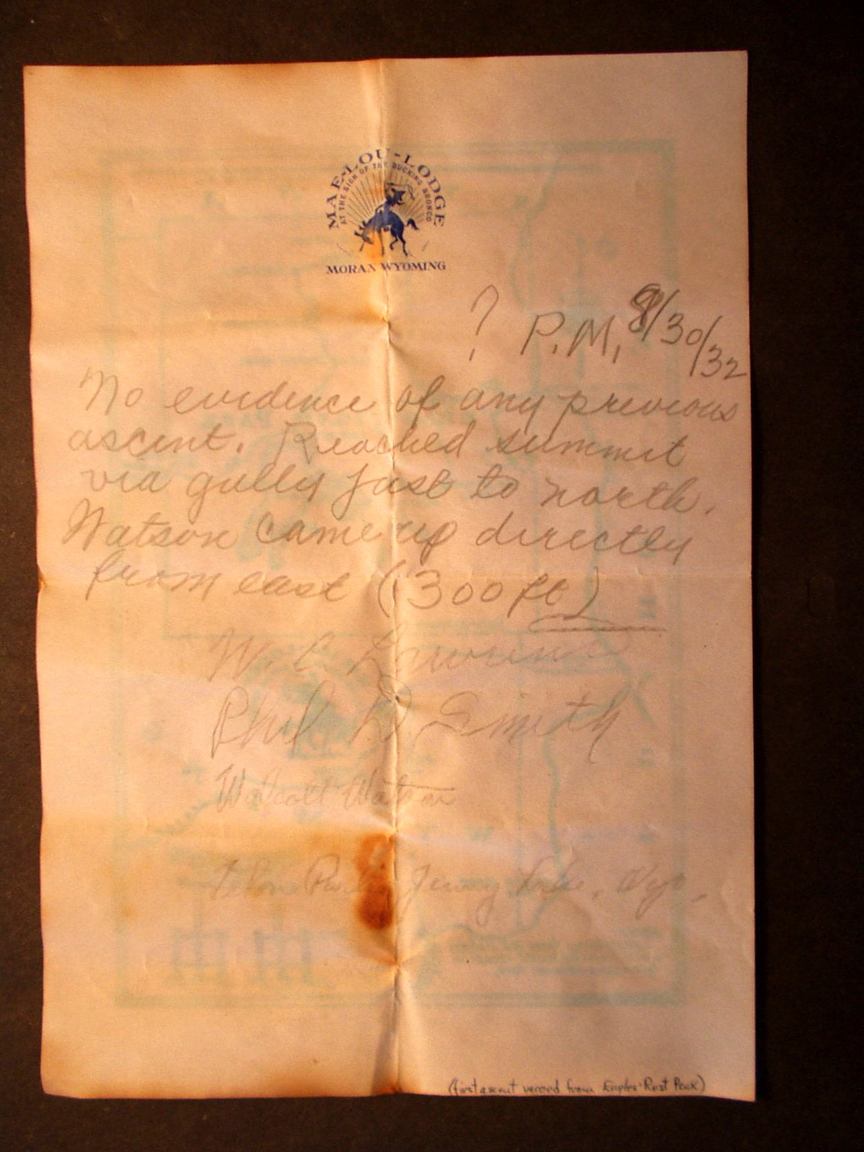 MAE-LOU-LODGE
AT THE SIGN OF THE BUCKING BRONCO
MORAN WYOMING
? P.M. 8/30/32
No evidence of any previous
ascent. Reached summit
via gully just to north.
Watson came up directly
from east (300 ft)
W. C. Lawrence
Phil D. Smith
Wolcott Watson
Jenny Lake, Wyo.
(first ascent record from Eagles Rest Peak)